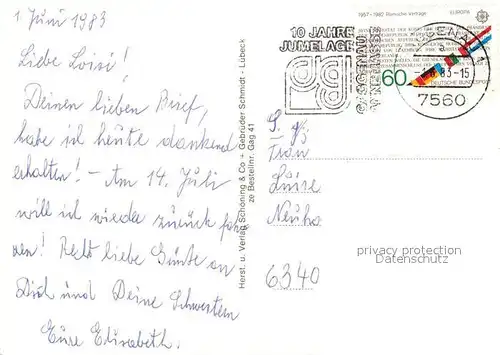 1 Juni 1983
Liebe Loise!
Deinen lieben Brief,
habe ich heute dankend
erhalten! - Am 14. Juli
will ich wieder zurück fah
ren! Recht liebe Grüße an
Dich und Deine Schwestern
Eure Elisabeth.
Herst. u. Verlag Schöning & Co + Gebrüder Schmidt - Lübeck
ze Bestellnr. Gag 41
10 JAHRE
JUMELAGE
GAGGENAU
ANNEMASSE
1957-1982 Römische Verträge
EUROPA
60
DEUTSCHE BUNDESPOST
83-15
7560
Frau
Luise
Neuho
6340
privacy protection
Datenschutz